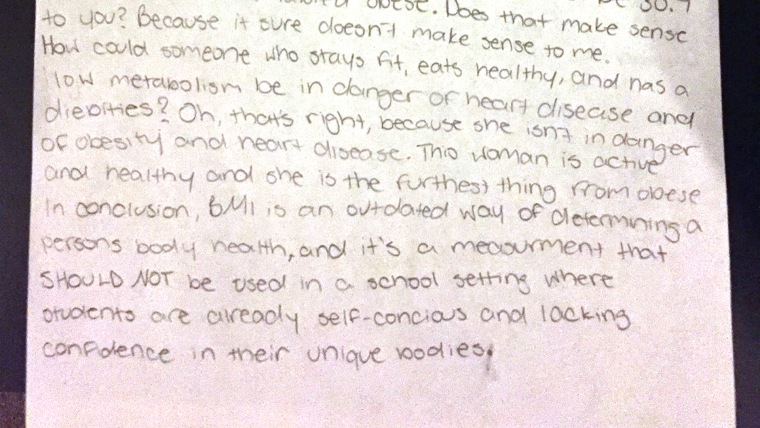 obese. Does that make sense
to you? Because it sure doesn't make sense to me.
How could someone who stays fit, eats healthy, and has a
low metabolism be in danger of heart disease and
diebities? Oh, that's right, because she isn't in danger
of obesity and heart disease. This woman is active
and healthy and she is the furthest thing from obese
In conclusion, BMI is an outdated way of determining a
persons body health, and it's a measurment that
SHOULD NOT be used in a school setting where
students are already self-concious and lacking
confidence in their unique bodies.